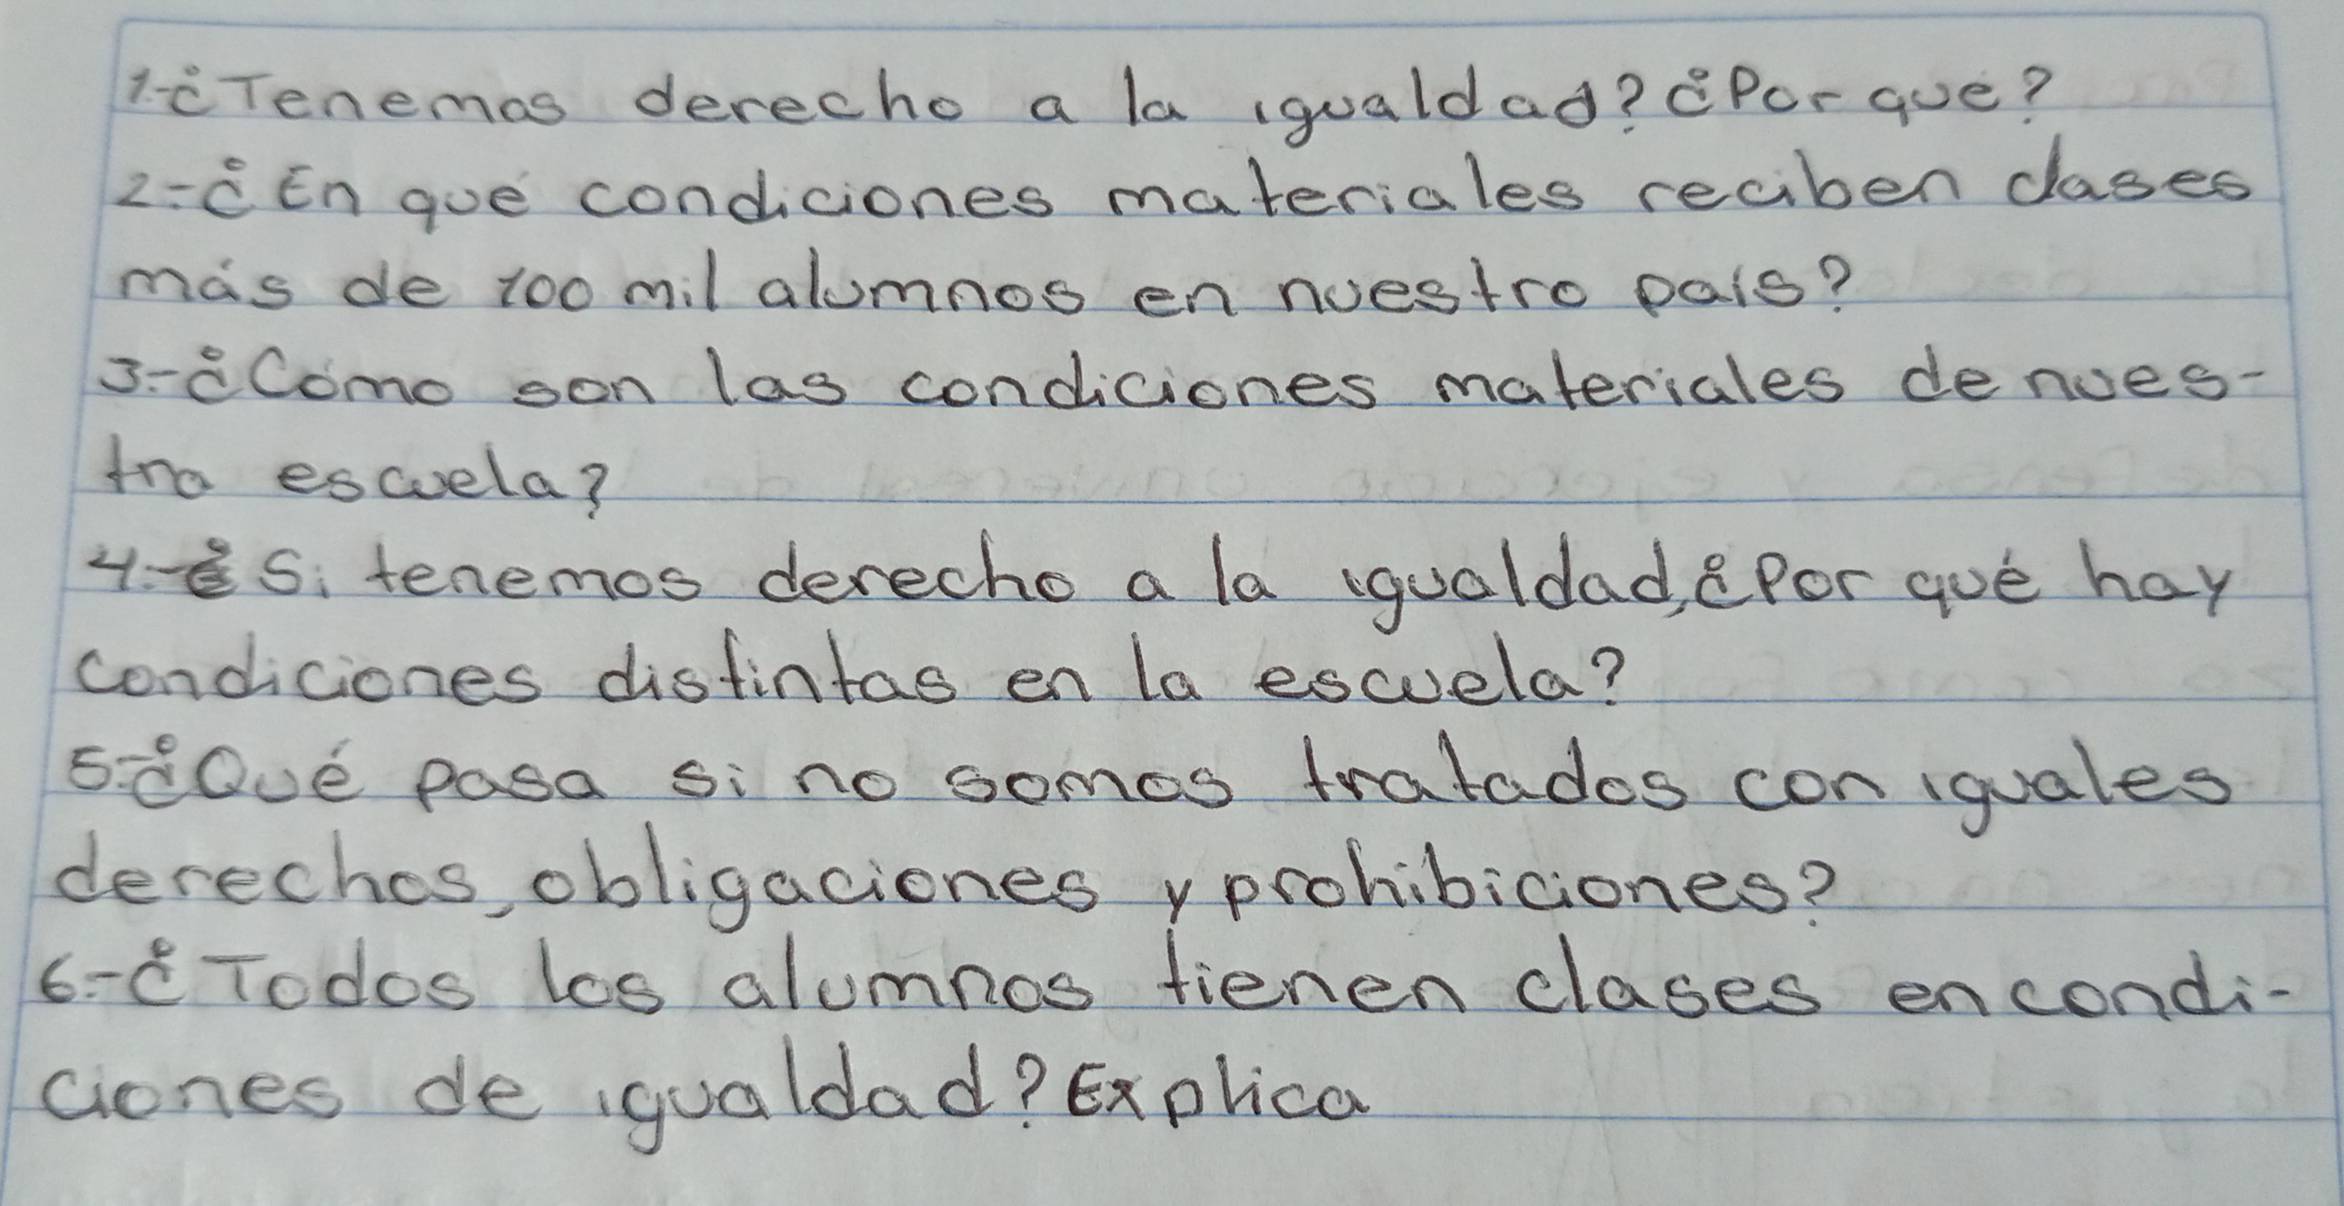 1.-¿Tenemos derecho a la igualdad? ¿Por que?
2.-¿En qué condiciones materiales reciben clases
más de 100 mil alumnos en nuestro país?
3.-¿Cómo son las condiciones materiales de nues-
tra escuela?
4.-¿Si tenemos derecho a la igualdad, ¿Por qué hay
condiciones distintas en la escuela?
5.-¿Qué pasa si no somos tratados con iguales
derechos, obligaciones y prohibiciones?
6.-¿Todos los alumnos tienen clases en condi-
ciones de igualdad? Explica